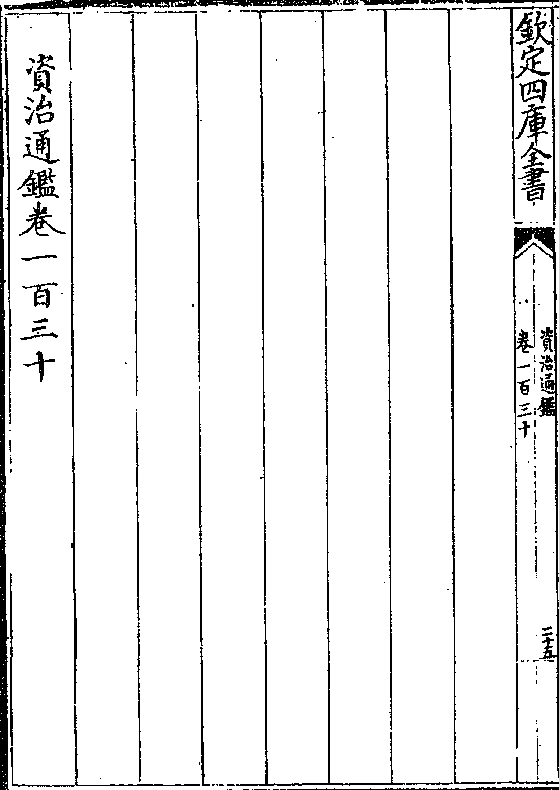 欽定四庫全書
資治通鑑
卷一百三十
二十五
資治通鑑卷一百三十